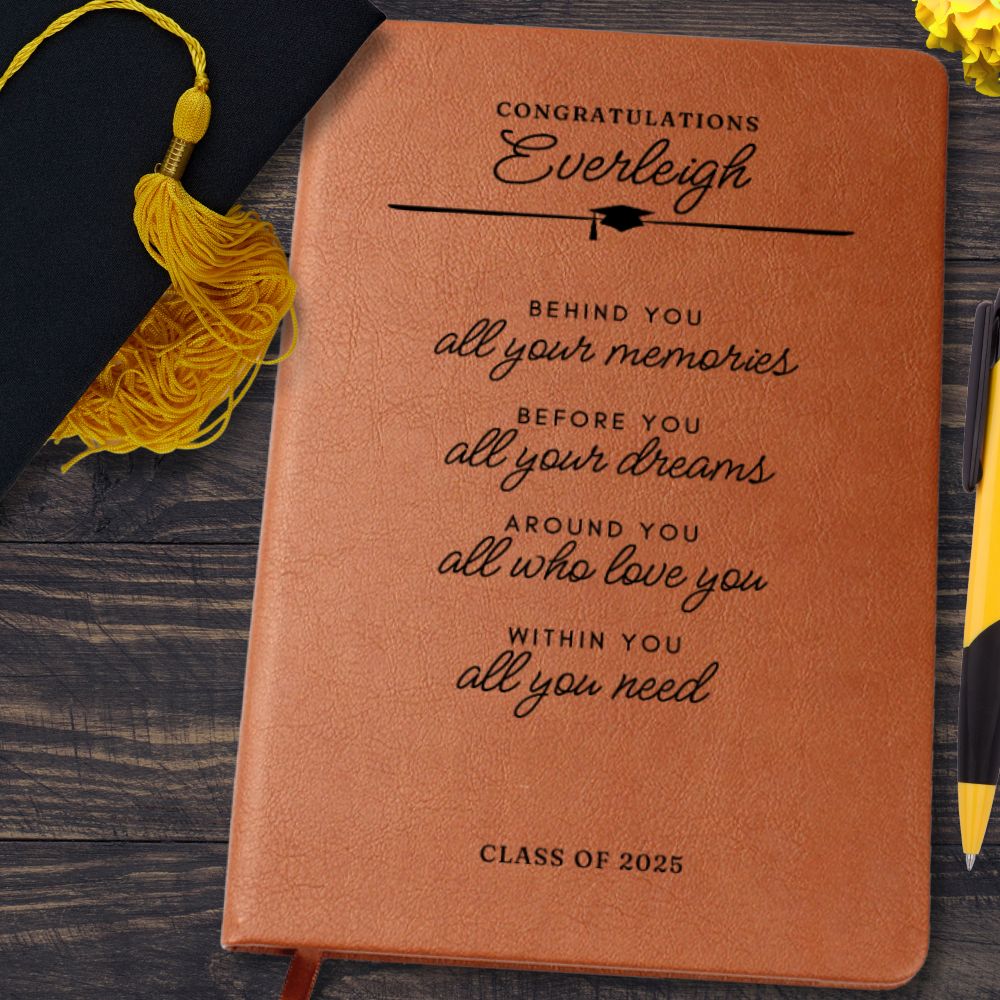 CONGRATULATIONS
Everleigh
BEHIND YOU
all your memories
BEFORE YOU
all your dreams
AROUND YOU
all who love you
WITHIN YOU
all you need
CLASS OF 2025